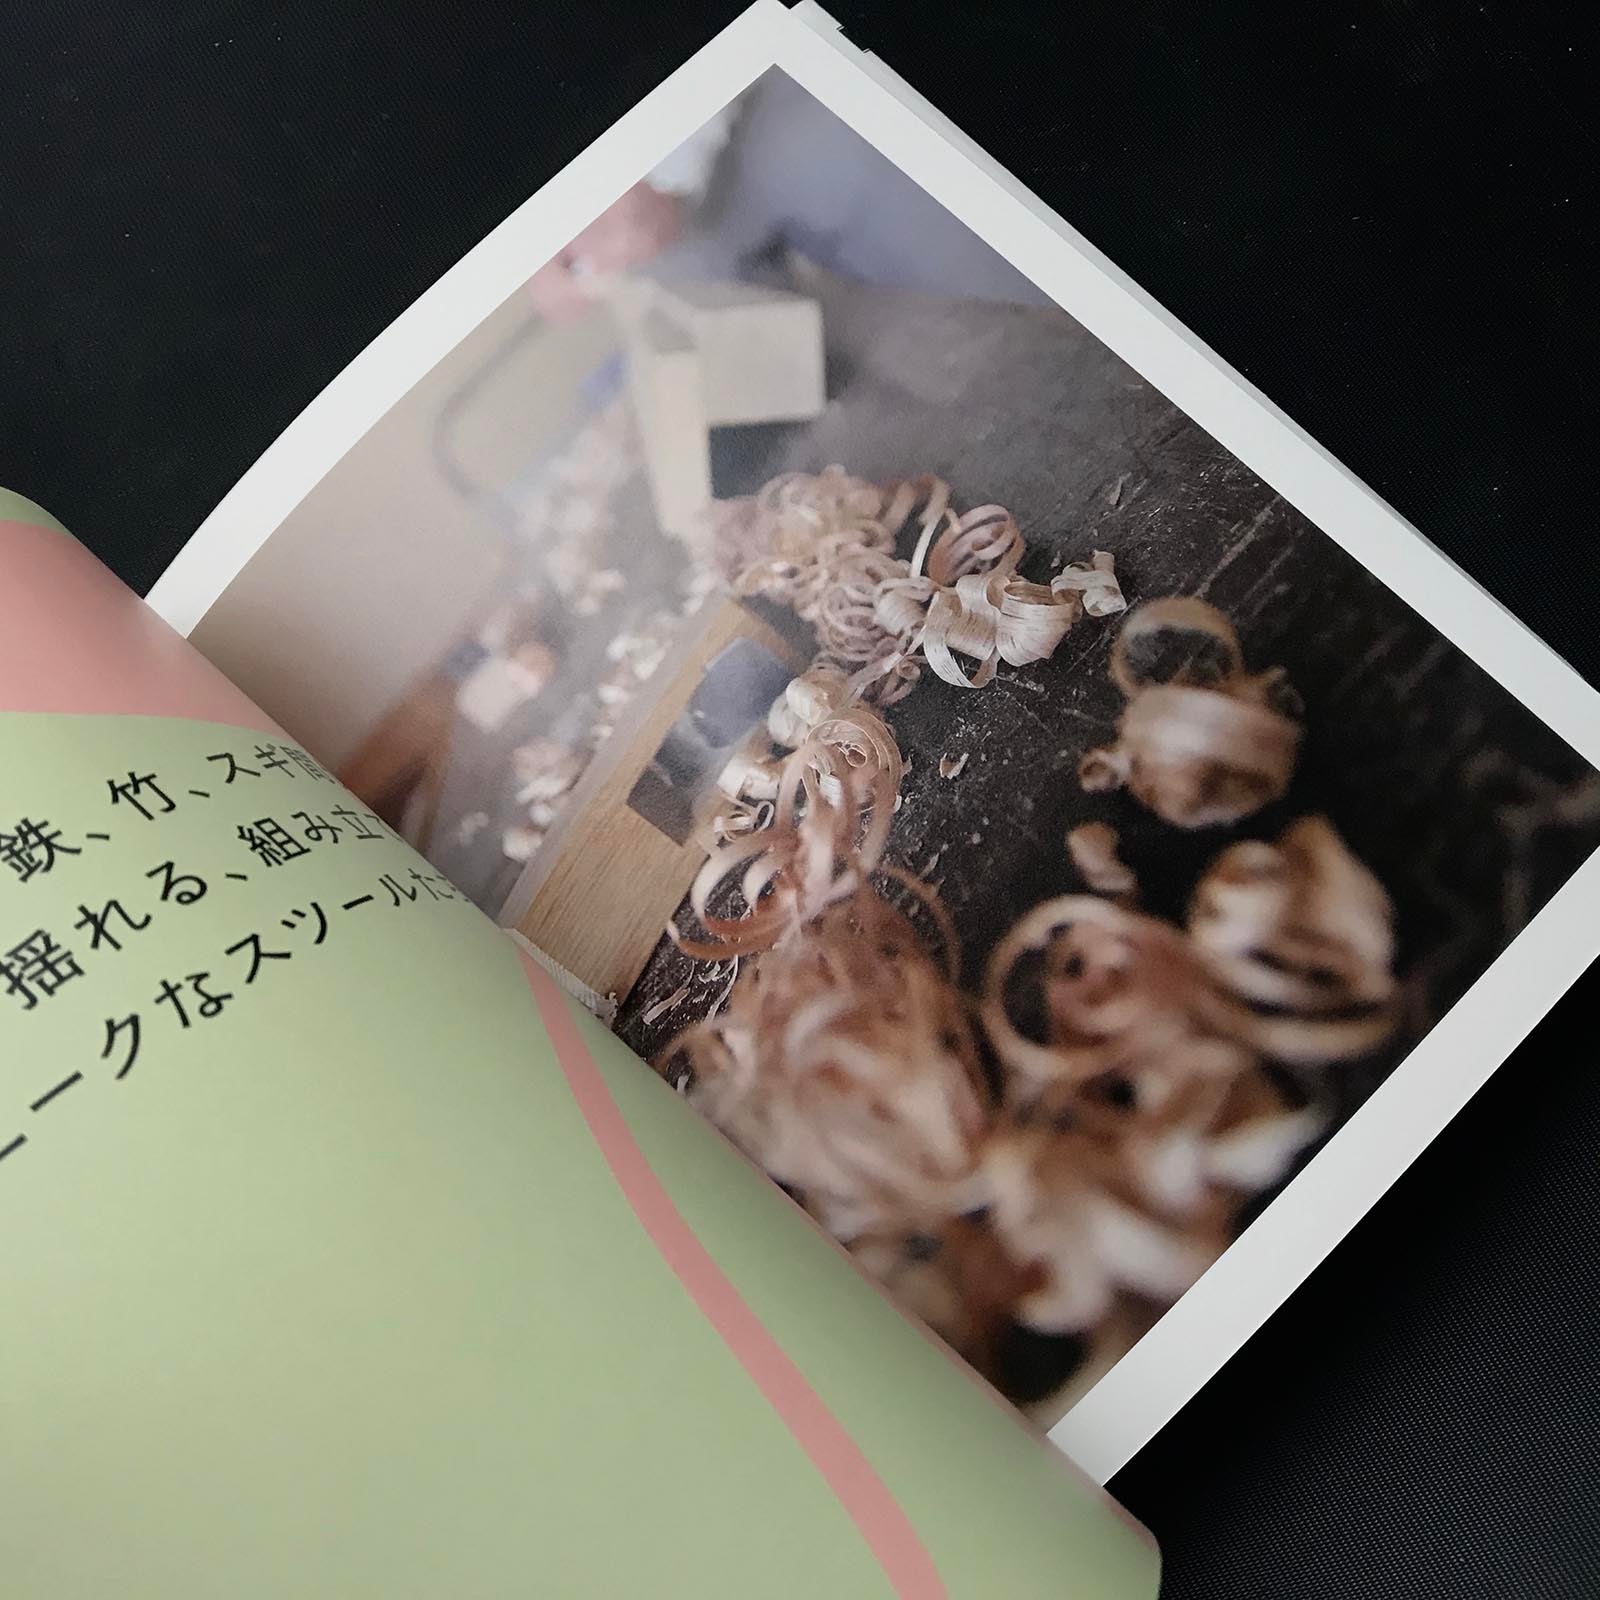 鉄、竹、スギ間
揺れる、組み立
ークなスツールた